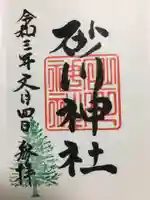 砂川神社
令和三年文月四日参拝